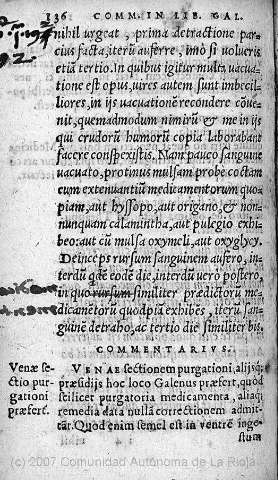 136 COMM. IN LIB. GAL.
nihil urgeat, prima detractione parcius
facta, iterū auferre, imò si volueris
etiā tertio. In quibus igitur multa vacuatione
est opus, vires autem sunt imbecilliores,
in ijs vacuationē recondere cōuenit,
quemadmodum nimirū & me in ijs
qui crudorū humorū copia laborabant
facere conspexistis. Nam pauco sanguine
vacuato, protinus mulsam probe coctam
cum extenuantiū medicamentorum quopiam,
aut hyssopo, aut origano, & nonnunquam
calamintha, aut pulegio exhibeo:
aut cū mulsa oxymeli, aut oxyglycy.
Deinceps rursum sanguinem aufero, interdū
quē eodē die, interdū vero postero,
in quo rursum similiter prædictorū medicamētorū
quodpiā exhibes, iterū sanguinē
detraho, ac tertio die similiter bis.
COMMENTARIVS.
Venæ sectio
purgationi
præfert.
VENAE sectionem purgationi, alijsq;
præsidijs hoc loco Galenus præfert, quòd
scilicet purgatoria medicamenta, aliaq;
remedia data nullā correctionem admittāt.
Quod enim semel est in ventrē ingestum
(c) 2007 Comunidad Autónoma de La Rioja